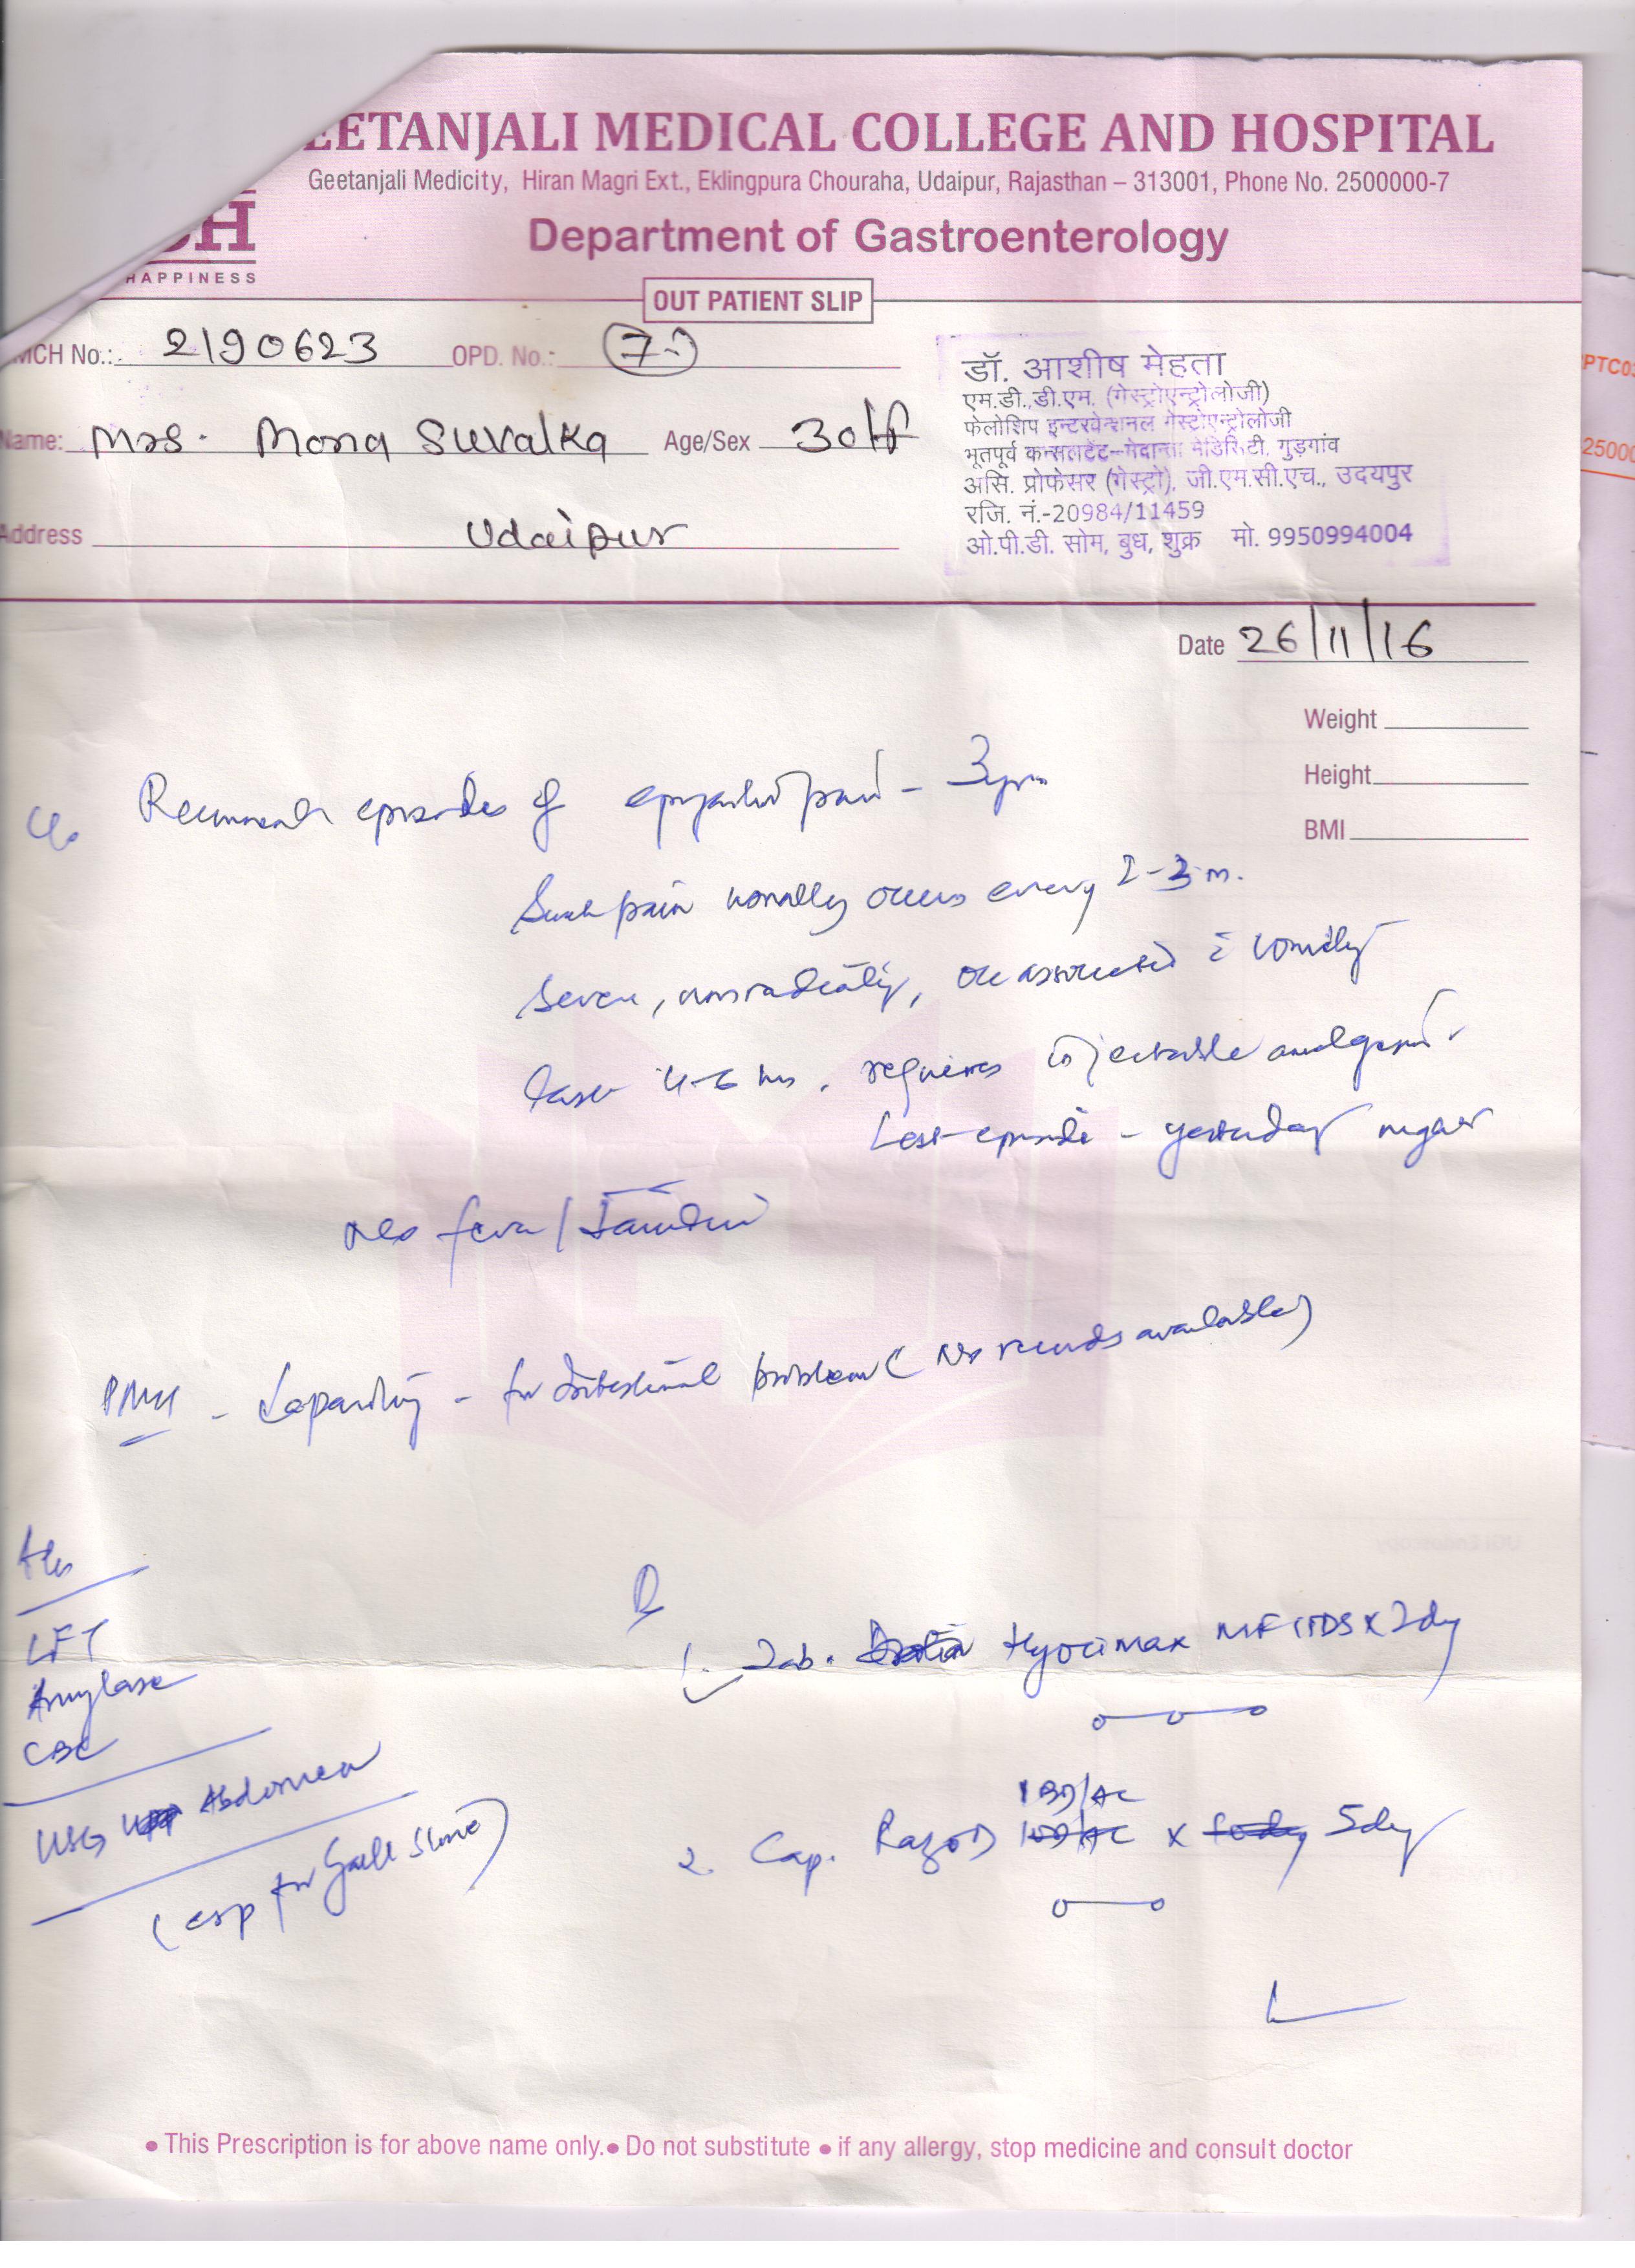 EETANJALI MEDICAL COLLEGE AND HOSPITAL
Geetanjali Medicity, Hiran Magri Ext., Eklingpura Chouraha, Udaipur, Rajasthan – 313001, Phone No. 2500000-7
Department of Gastroenterology
HAPPINESS
OUT PATIENT SLIP
MCH No.: 2190623 OPD. No.: 7
Name: Mrs. Mona Suvalka Age/Sex 30/f
Address Udaipur
डॉ. आशीष मेहता
एम.डी.,डी.एम. (गेस्ट्रोएन्ट्रोलोजी)
फेलोशिप इन्टरवेन्शनल गेस्टोएन्ट्रोलोजी
भूतपूर्व कन्सलटेंट–मेदान्ता मेडिसिटी, गुड़गांव
असि. प्रोफेसर (गेस्ट्रो), जी.एम.सी.एच., उदयपुर
रजि. नं.-20984/11459
ओ.पी.डी. सोम, बुध, शुक्र मो. 9950994004
PTC03
25000
Date 26/11/16
Weight
Height
BMI
c/o Recurrent episodes of epigastric pain - 3yrs
Such pain usually occurs every 2-3 m.
Severe, nonradiating, associated c̄ vomiting
last 4-6 hrs, requires injectable analgesid.
Last episode - yesterday night
No fever / Jaundice
PMH - Laparotomy - for Intestinal problem (No records available)
Adv
LFT
Amylase
CBC
USG Abdomen
(esp for Gall Stone)
Rx
1. Tab. Hyocimax MF 1TDS x 2dy
2. Cap. Razo D 1BD/AC x 5dy
• This Prescription is for above name only. • Do not substitute • if any allergy, stop medicine and consult doctor